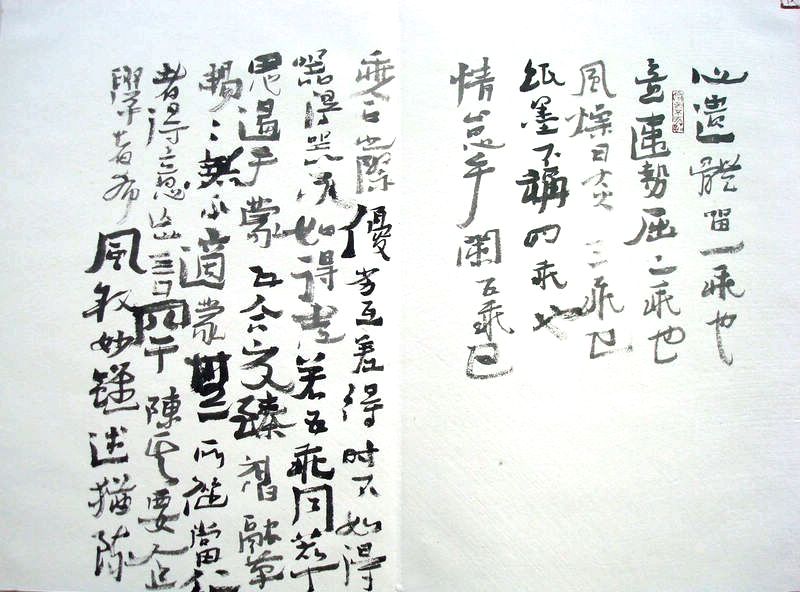 心遽體留一乖也
意違勢屈二乖也
風燥日炎三乖也
紙墨不稱四乖也
情怠手闌五乖也
乖合之際優劣互差得時不如得
器得器不如得志若五乖同萃
思遏手蒙五合交臻神融筆
暢〻無不適蒙無所從當仁
者得意忘言罕陳其要企
學者希風敘妙雖述猶疎